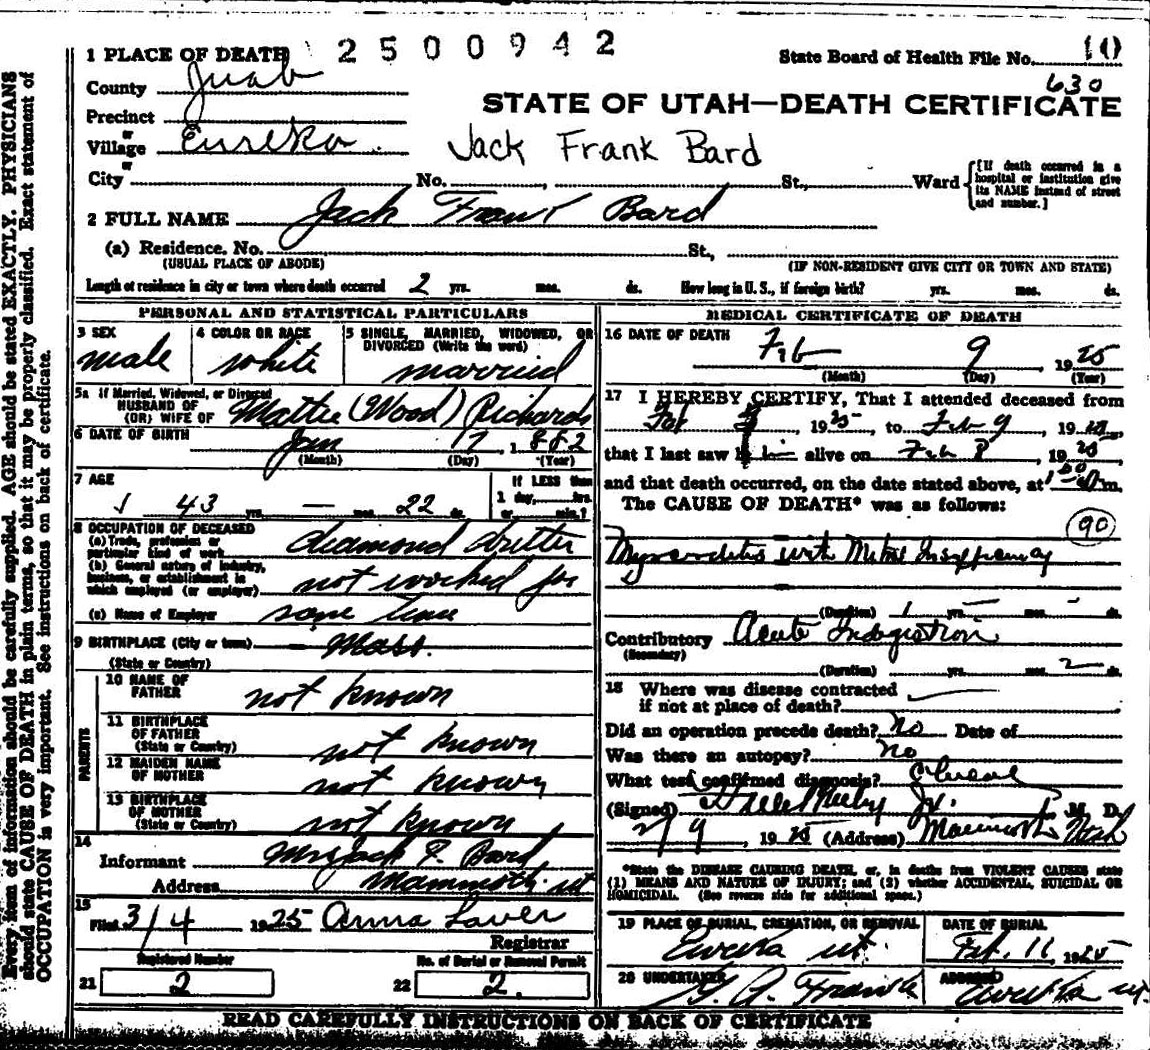 1 PLACE OF DEATH 2500942 State Board of Health File No. 10
County Juab 630
STATE OF UTAH—DEATH CERTIFICATE
Precinct
or
Village Eureka. Jack Frank Bard
or
City No. St., Ward [If death occurred in a hospital or institution give its NAME instead of street and number.]
2 FULL NAME Jack Frank Bard
(a) Residence. No. St.,
(USUAL PLACE OF ABODE) (IF NON-RESIDENT GIVE CITY OR TOWN AND STATE)
Length of residence in city or town where death occurred 2 yrs. mos. ds. How long in U. S., if foreign birth? yrs. mos. ds.
PERSONAL AND STATISTICAL PARTICULARS
3 SEX
male
4 COLOR OR RACE
white
5 SINGLE, MARRIED, WIDOWED, OR
DIVORCED (Write the word)
married
5a If Married, Widowed, or Divorced
HUSBAND OF
(OR) WIFE OF Mattie (Wood) Richards
6 DATE OF BIRTH Jan 17, 1882
(Month) (Day) (Year)
7 AGE
43 yrs. — mos. 22 ds.
If LESS than
1 day, hrs.
or min.?
8 OCCUPATION OF DECEASED
(a) Trade, profession or
particular kind of work diamond
(b) General nature of industry,
business, or establishment in
which employed (or employer) not worked for
(c) Name of Employer some time
9 BIRTHPLACE (City or town) Mass.
(State or Country)
PARENTS
10 NAME OF
FATHER not known
11 BIRTHPLACE
OF FATHER
(State or Country) not known
12 MAIDEN NAME
OF MOTHER not known
13 BIRTHPLACE
OF MOTHER
(State or Country) not known
14
Informant Mrs Jack F. Bard
Address Mammoth, ut
15
Filed 3/4 1925 Anna Laver
Registrar
Registered Number
21 2
No. of Burial or Removal Permit
22 2.
MEDICAL CERTIFICATE OF DEATH
16 DATE OF DEATH
Feb 9 1925
(Month) (Day) (Year)
17 I HEREBY CERTIFY, That I attended deceased from
Feb 1925, to Feb 9, 1925,
that I last saw him alive on Feb 8, 1925
and that death occurred, on the date stated above, at m.
The CAUSE OF DEATH* was as follows:
90
Myocarditis with Mitral Insufficiency
(Duration) 1 yrs. — mos. - ds.
Contributory Acute Indigestion
(Secondary)
(Duration) yrs. mos. 2 ds.
18 Where was disease contracted
if not at place of death?
Did an operation precede death? No Date of
Was there an autopsy? no
What test confirmed diagnosis?
(Signed) Jr. M. D.
2/9 1925 (Address) Mammoth Utah
*State the DISEASE CAUSING DEATH, or, in deaths from VIOLENT CAUSES state
(1) MEANS AND NATURE OF INJURY; and (2) whether ACCIDENTAL, SUICIDAL OR
HOMICIDAL. (See reverse side for additional space.)
19 PLACE OF BURIAL, CREMATION, OR REMOVAL
Eureka ut.
DATE OF BURIAL
Feb. 11, 1925
20 UNDERTAKER
ADDRESS
Eureka ut.
READ CAREFULLY INSTRUCTIONS ON BACK OF CERTIFICATE
Every item of information should be carefully supplied. AGE should be stated EXACTLY. PHYSICIANS
should state CAUSE OF DEATH in plain terms, so that it may be properly classified. Exact statement of
OCCUPATION is very important. See instructions on back of certificate.